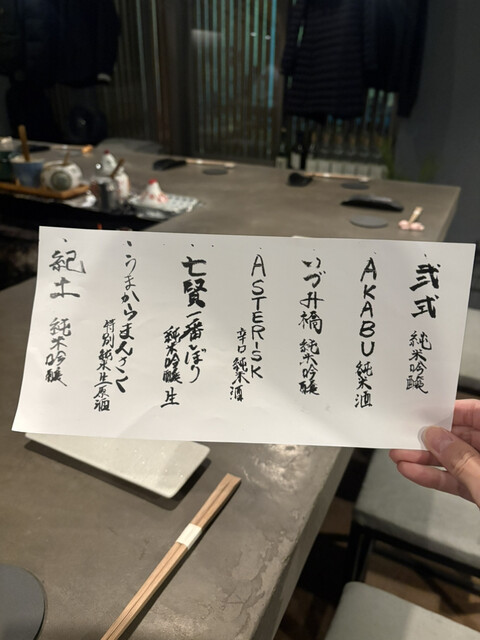 ・弐式 純米吟醸
・AKABU 純米酒
・いづみ橋 純米吟醸
・ASTERISK 辛口純米酒
・七賢 一番しぼり 純米吟醸 生
・うまからまんさく 特別純米生原酒
・紀土 純米吟醸